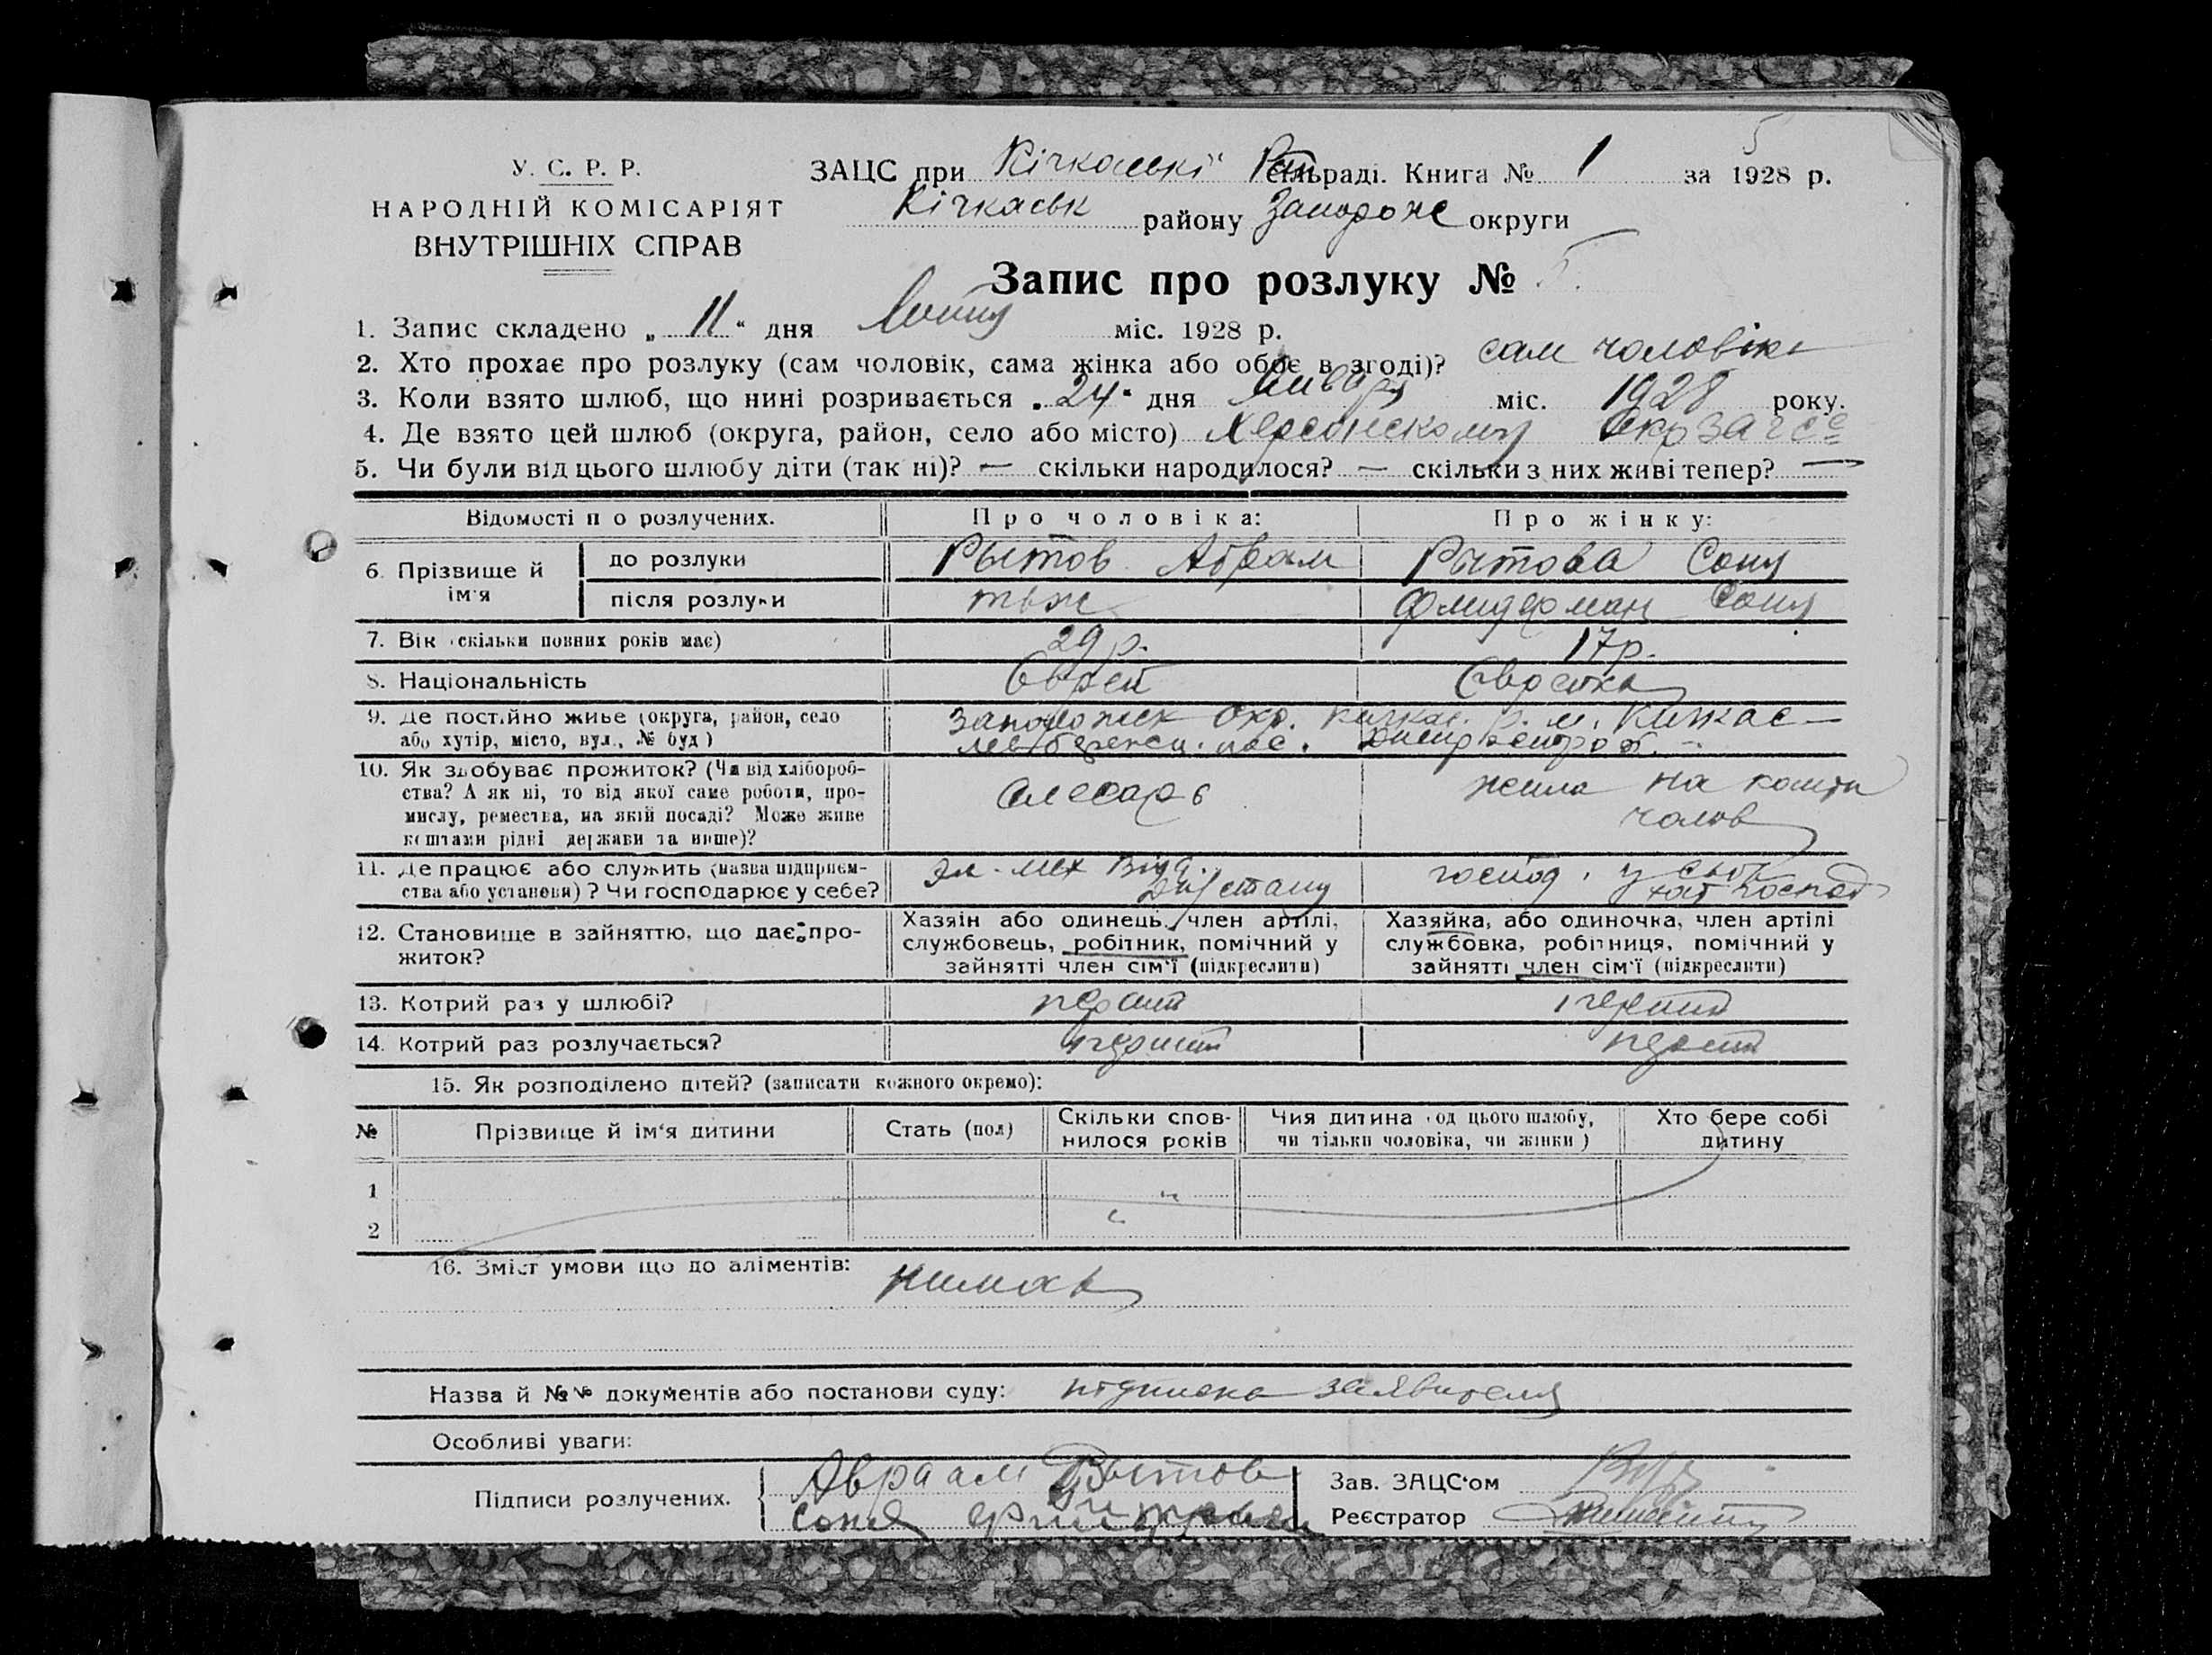 5
У. С. Р. Р.
НАРОДНІЙ КОМІСАРІЯТ
ВНУТРІШНІХ СПРАВ
ЗАЦС при Кічкаські Рай сільраді. Книга № 1 за 1928 р.
Кічкаськ району Запорож округи
Запис про розлуку № 5.
1. Запис складено „ 11 “ дня міс. 1928 р.
2. Хто прохає про розлуку (сам чоловік, сама жінка або обоє в згоді)? сам чоловік
3. Коли взято шлюб, що нині розривається „ 24 “ дня Января міс. 1928 року.
4. Де взято цей шлюб (округа, район, село або місто) Херсонскому Окрзагсе
5. Чи були від цього шлюбу діти (так ні)? — скільки народилося? — скільки з них живі тепер? —
Відомості п о розлучених. Про чоловіка: Про жінку:
6. Прізвище й ім'я
до розлуки Рытов Абрам Рытова Соня
після розлуки Соня
7. Вік (скільки повних років має) 29 р. 17 р.
8. Національність Єврей Єврейка
9. Де постійно живе (округа, район, село або хутір, місто, вул., № буд) Запорожск Окр. Кичкас. р. м. Кичкас —
10. Як здобуває прожиток? (Чи від хлібороб-
ства? А як ні, то від якої саме роботи, про-
мислу, ремества, на якій посаді? Може живе
коштами рідні держави та инше)?
слесарь
жила на кошти
чолов
11. Де працює або служить (назва підприєм-
ства або установи)? Чи господарює у себе?
Эл-мех Відд.
господ. у
12. Становище в зайняттю, що дає про-
житок?
Хазяін або одинець, член артілі,
службовець, робітник, помічний у
зайнятті член сім'ї (підкреслити)
Хазяйка, або одиночка, член артілі
службовка, робітниця, помічний у
зайнятті член сім'ї (підкреслити)
13. Котрий раз у шлюбі? перший перший
14. Котрий раз розлучається? перший перший
15. Як розподілено дітей? (записати кожного окремо):
№ Прізвище й ім'я дитини Стать (пол) Скільки спов-
нилося років Чия дитина (од цього шлюбу,
чи тільки чоловіка, чи жінки) Хто бере собі
дитину
1
2
16. Зміст умови що до аліментів:
Назва й №№ документів або постанови суду: підписка заявителя
Особливі уваги:
Підписи розлучених. Авраам Рытов
Соня
Зав. ЗАЦС'ом
Реєстратор